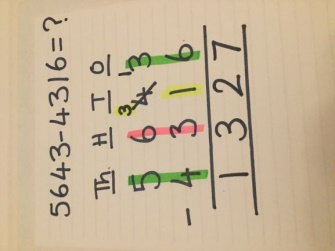 5643-4316=?
Th H T O
5 6 ³4 ¹3
- 4 3 1 6
1 3 2 7